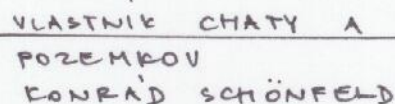 VLASTNIK CHATY A
POZEMKOV
KONRÁD SCHÖNFELD